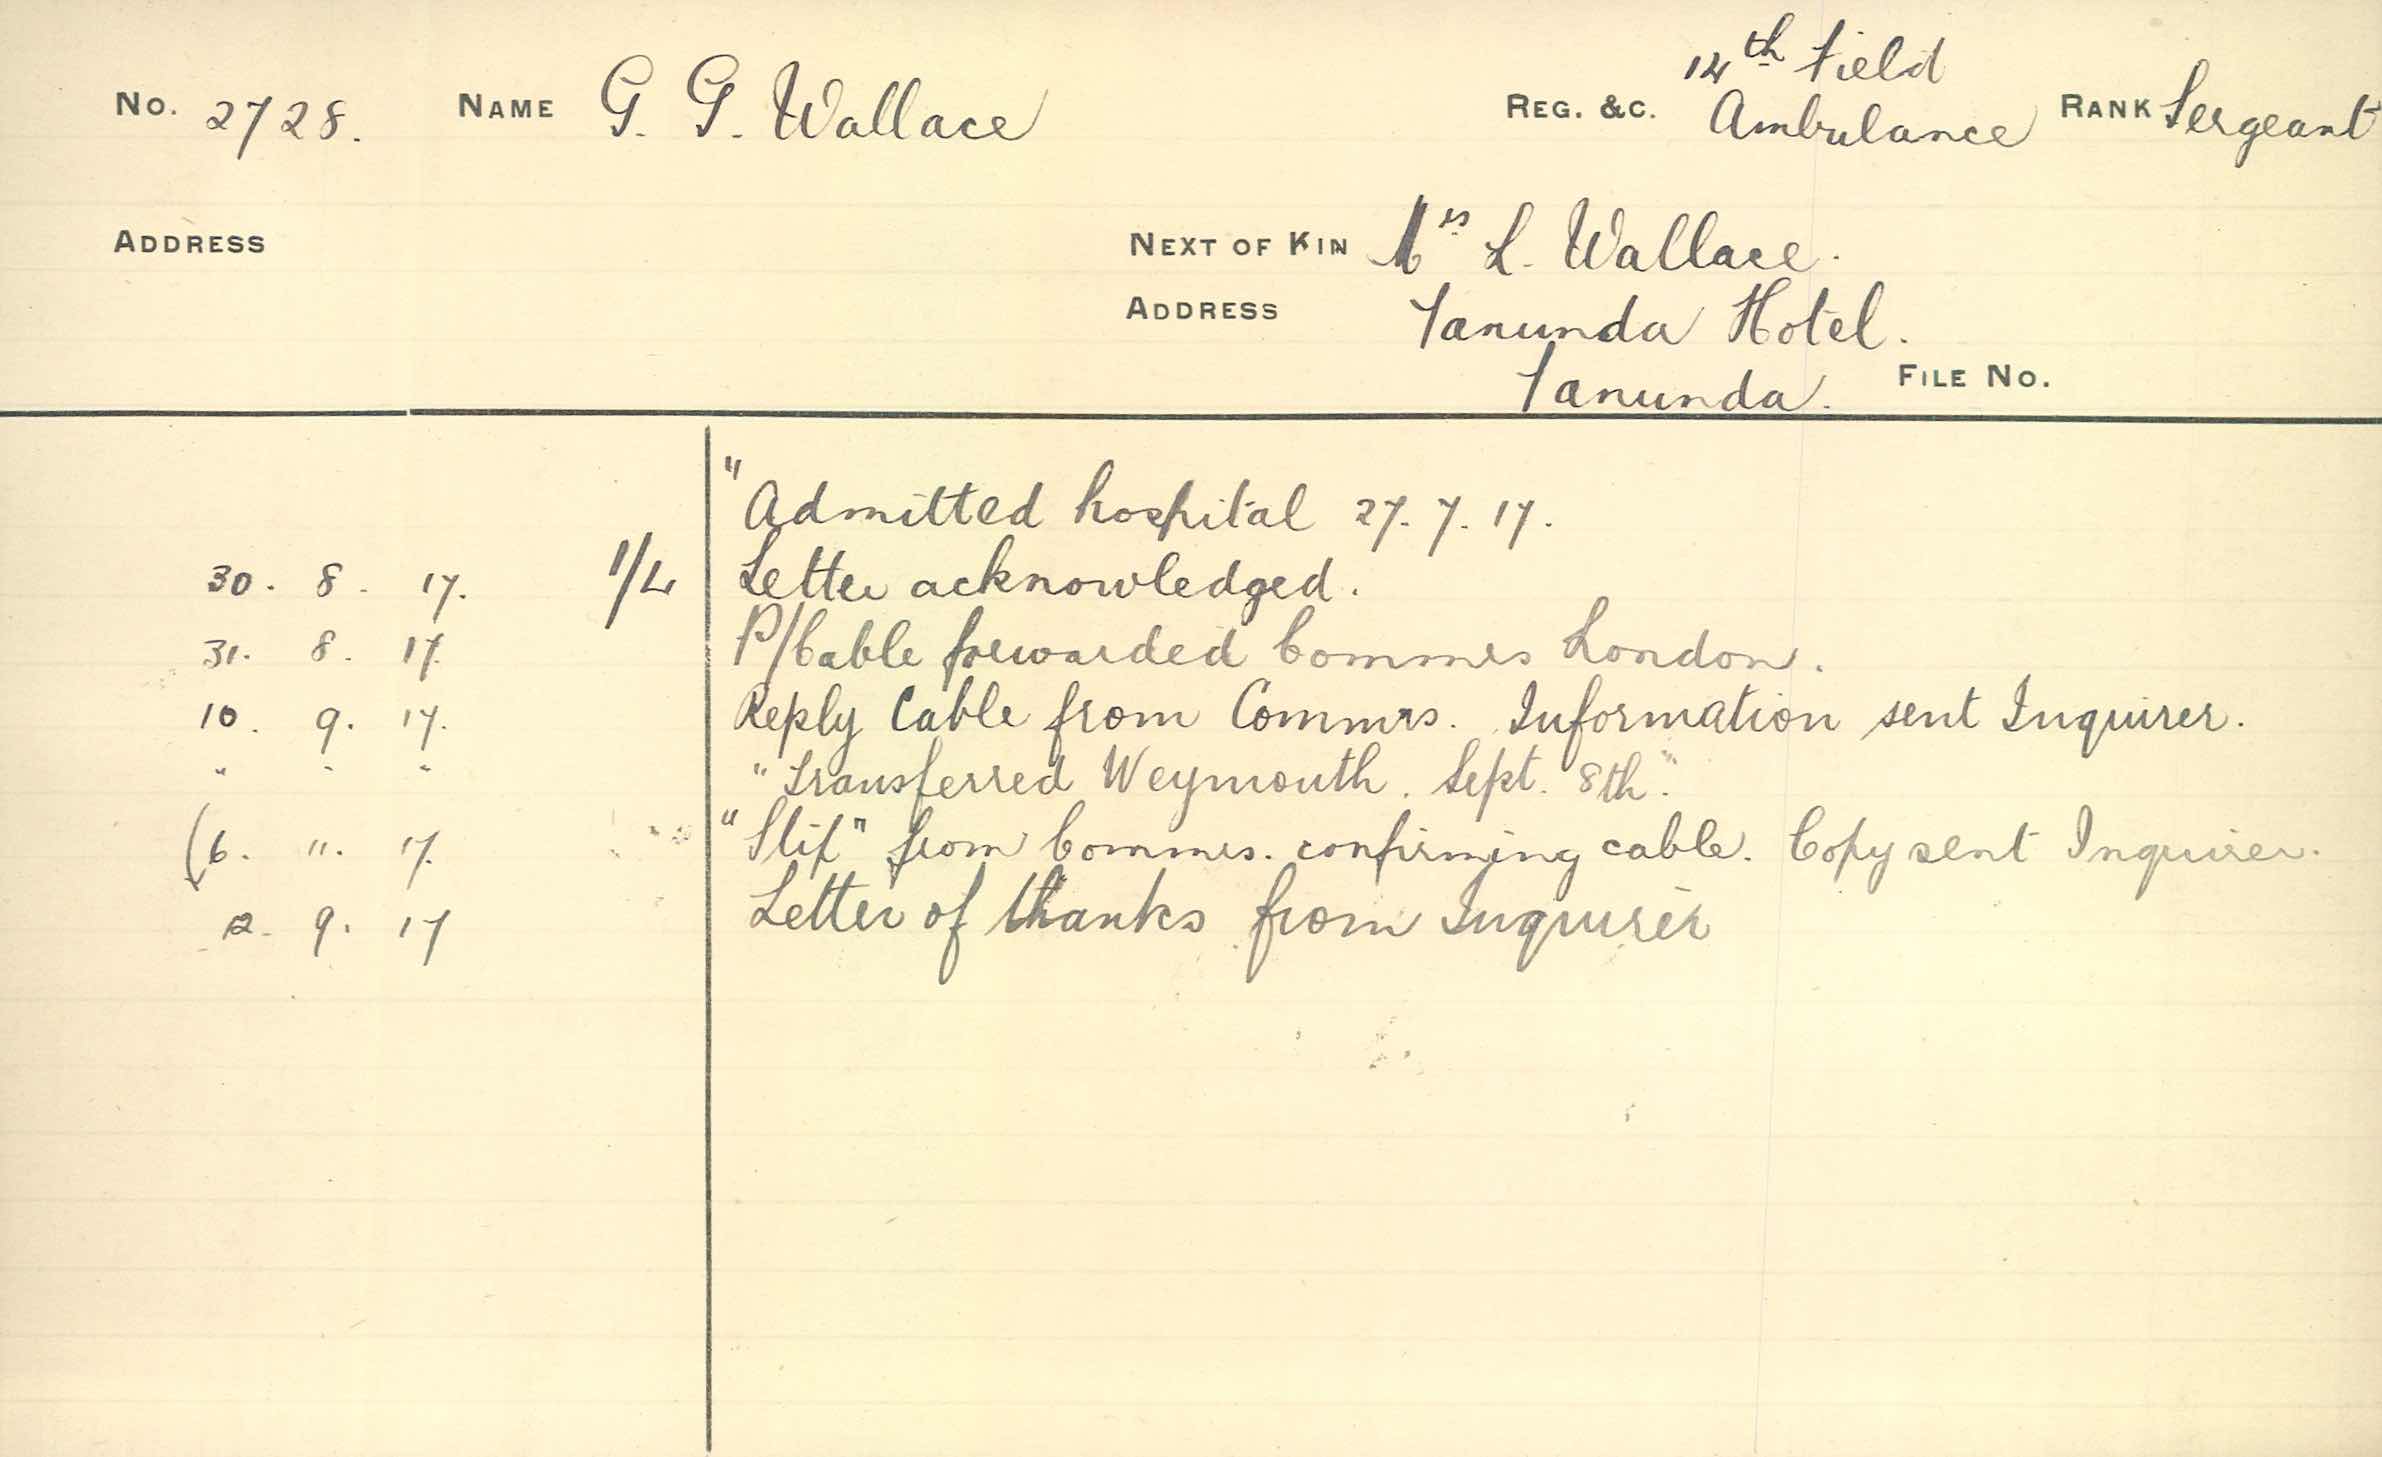 No. 2728. NAME G. G. Wallace REG. &C. 14th Field Ambulance RANK Sergeant
ADDRESS NEXT OF KIN Mrs L. Wallace.
ADDRESS Tanunda Hotel.
Tanunda. FILE No.
"Admitted hospital 27. 7. 17.
30. 8. 17. 1/L Letter acknowledged.
31. 8. 17. P/Cable forwarded Commrs London.
10. 9. 17. Reply Cable from Commrs. Information sent Inquirer.
" " " "Transferred Weymouth. Sept. 8th."
(6. ". 17. "Slip" from Commrs. confirming cable. Copy sent Inquirer.
2. 9. 17 Letter of thanks from Inquirer